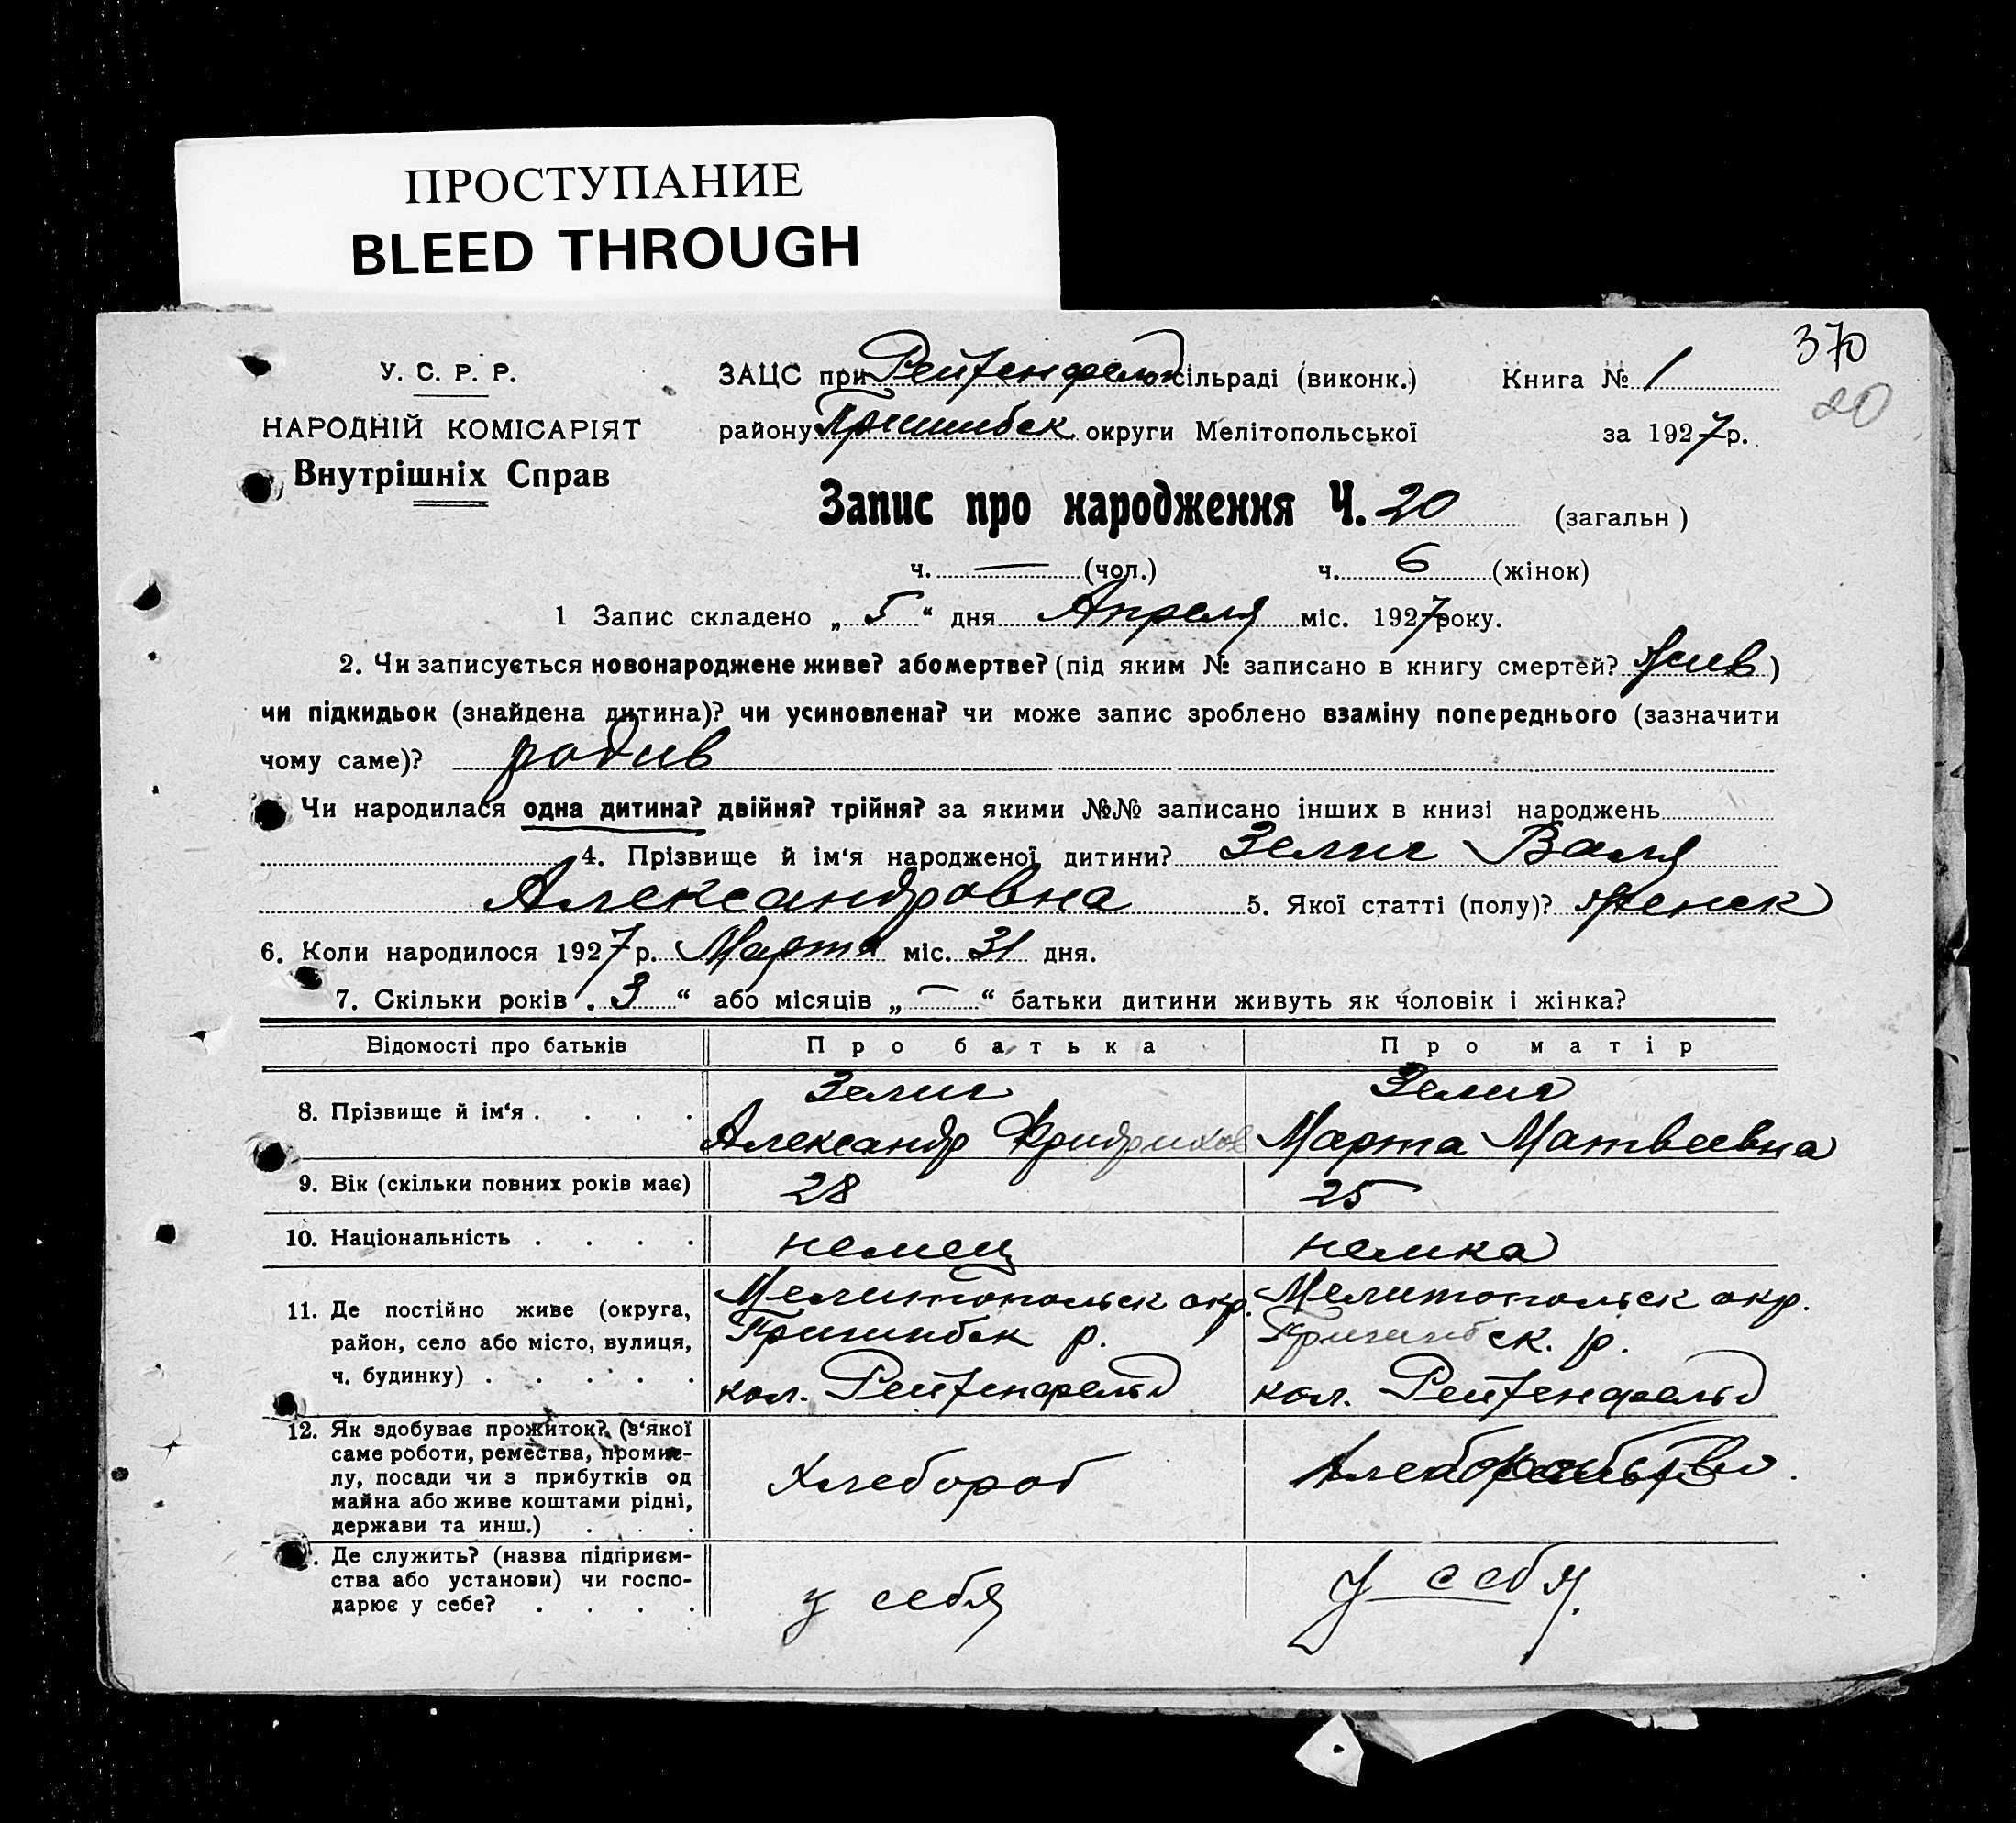 ПРОСТУПАНИЕ
BLEED THROUGH
370
20
У. С. Р. Р.
НАРОДНІЙ КОМІСАРІЯТ
Внутрішніх Справ
ЗАЦС при Рейхенфельд сільраді (виконк.) Книга № 1
району Пришибск. округи Мелітопольської за 1927 р.
Запис про народження Ч. 20 (загальн)
ч. — (чол.) ч. 6 (жінок)
1 Запис складено „ 5 “ дня Апреля міс. 1927 року.
2. Чи записується новонароджене живе? або мертве? (під яким № записано в книгу смертей? жив)
чи підкидьок (знайдена дитина)? чи усиновлена? чи може запис зроблено взаміну попереднього (зазначити
чому саме)? родив
Чи народилася одна дитина? двійня? трійня? за якими №№ записано інших в книзі народжень
4. Прізвище й ім‘я народженої дитини? Зелиг Валя
Александровна 5. Якої статті (полу)? женск
6. Коли народилося 1927 р. Марта міс. 31 дня.
7. Скільки років „ 3 “ або місяців „ — “ батьки дитини живуть як чоловік і жінка?
Відомості про батьків Про батька Про матір
8. Прізвище й ім‘я . . . . Зелиг Зелиг
Александр Фридрихов Марта Матвеевна
9. Вік (скільки повних років має) 28 25
10. Національність . . . . немец немка
11. Де постійно живе (округа, Мелитопольск окр. Мелитопольск окр.
район, село або місто, вулиця, Пришибск р. Пришибск. р.
ч. будинку) . . . . . кол. Рейхенфельд кол. Рейхенфельд
12. Як здобуває прожиток? (з‘якої
саме роботи, ремества, промис-
лу, посади чи з прибутків од Хлебороб
майна або живе коштами рідні,
держави та инш.) . . .
. Де служить? (назва підприєм-
ства або установи) чи госпо- у себя у себя.
дарює у себе? . . . .